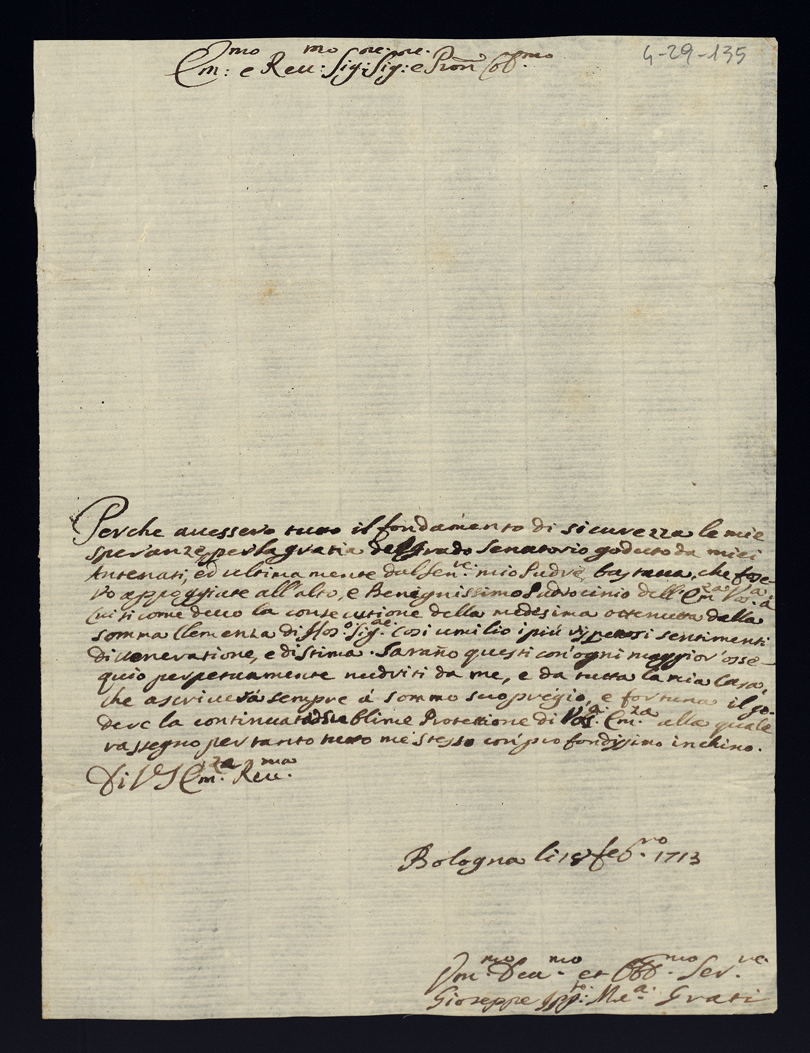 4-29-135
Em:mo e Reu:mo Sig:re Sig:re e Pron Col:mo
Perche auessero tutto il fondamento di sicurezza le mie
speranze per la gratia del Grado Senatorio goduto da miei
Antenati, ed ultimamente dal Sen:re mio Padre, bastaua, che fosse-
ro appoggiate all'alto, e Benegnissimo Patrocinio dell'Em:za Vos:a à
Cui sicome deuo la consecutione della medesima ottenuta dalla
somma Clemenza di Nos:o Sig:re. Cosi umilio i più rispettosi sentimenti
di ueneratione, e di stima. Saraño questi con'ogni maggior'osse-
quio perpetuamente nudriti da me, e da tutta la mia Casa,
che ascriuerà sempre à sommo suo pregio, e fortuna il go-
dere la continuat sublime Protettione di Vos:a Em:za alla quale
rassegno per tanto tutto me stesso con profondissimo inchino.
Di V S Em:za Reu:ma
Bologna li 18 Feb:ro 1713
Um:mo Deu:mo et Obb:mo Ser:re
Gioseppe M:a Grati